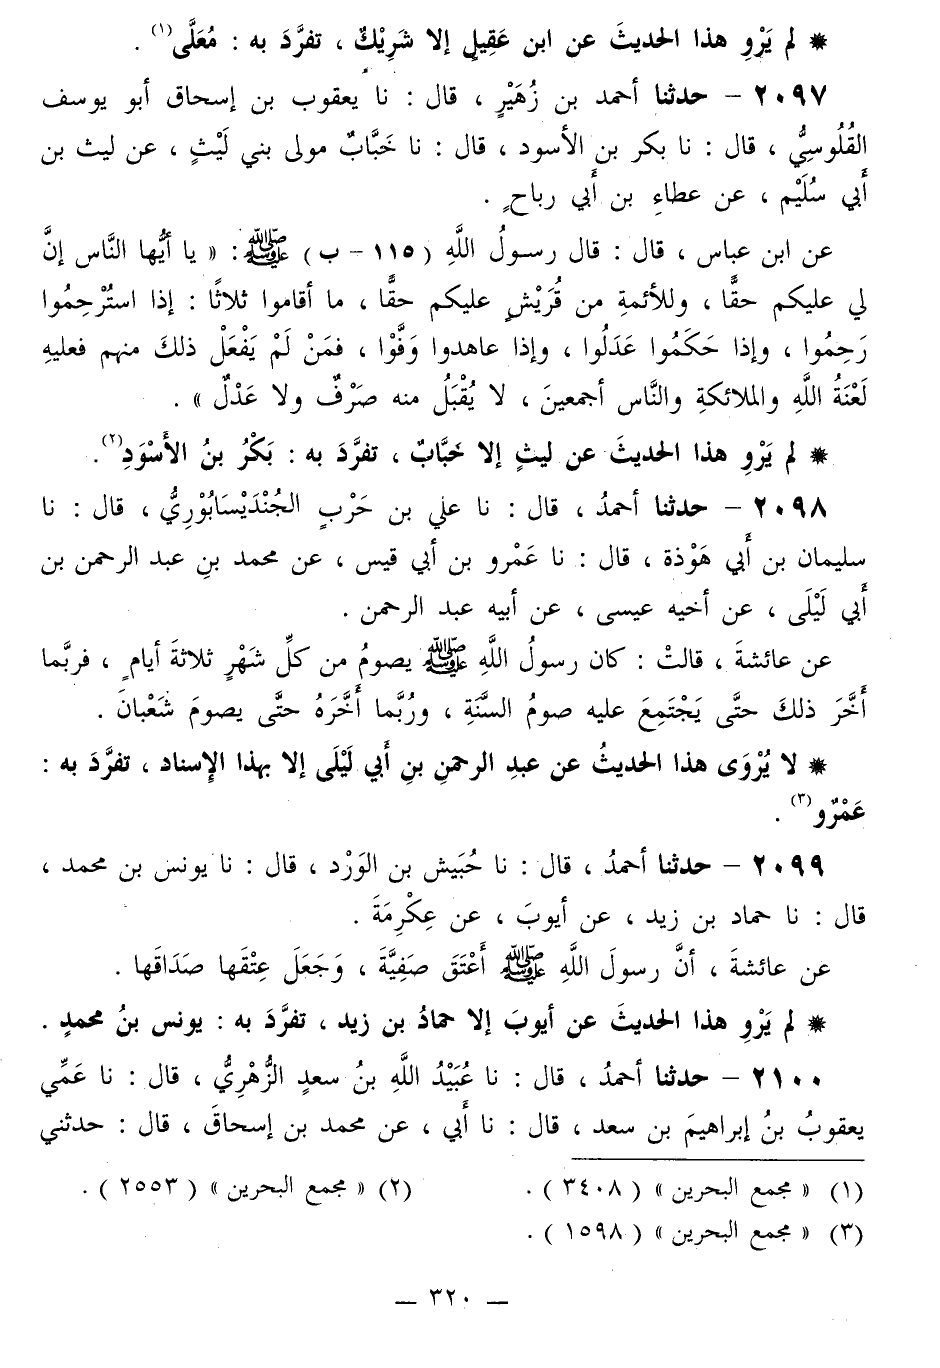 * لم يَرْوِ هذا الحديثَ عن ابن عَقِيلٍ إلا شَرِيْكٌ ، تفرَّدَ به : مُعَلَّى(١) .
٢٠٩٧ – حدثنا أحمد بن زُهَيْرٍ ، قال : نا يعقوب بن إسحاق أبو يوسف
القُلُوسِيُّ ، قال : نا بكر بن الأسود ، قال : نا خَبَّابٌ مولى بني لَيْثٍ ، عن ليث بن
أَبي سُلَيْم ، عن عطاءِ بن أَبي رباحٍ .
عن ابن عباس ، قال : قال رسولُ اللَّهِ ( ١١٥ – ب ) ﷺ : « يا أيُّها النَّاس إنَّ
لي عليكم حقًّا ، وللأئمةِ من قُرَيْشٍ عليكم حقًّا ، ما أقاموا ثلاثًا : إذا استُرْحِمُوا
رَحِمُوا ، وإذا حَكَمُوا عَدَلُوا ، وإذا عاهدوا وَفَّوْا ، فمَنْ لَمْ يَفْعَلْ ذلكَ منهم فعليهِ
لَعْنَةُ اللَّهِ والملائكةِ والنَّاس أجمعينَ ، لا يُقْبَلُ منه صَرْفٌ ولا عَدْلٌ » .
* لم يَرْوِ هذا الحديثَ عن ليثٍ إلا خَبَّابٌ ، تفرَّدَ به : بَكْرُ بنُ الأَسْوَدِ(٢).
٢٠٩٨ – حدثنا أحمدُ ، قال : نا علي بن حَرْبٍ الجُنْدَيْسَابُوْرِيُّ ، قال : نا
سليمان بن أَبي هَوْذة ، قال : نا عَمْرو بن أبي قيس ، عن محمد بنِ عبد الرحمن بن
أَبي لَيْلَى ، عن أخيه عيسى ، عن أبيه عبد الرحمن .
عن عائشةَ ، قالتْ : كان رسولُ اللَّهِ ﷺ يصومُ من كلِّ شَهْرٍ ثلاثةَ أيامٍ ، فربَّما
أَخَّرَ ذلكَ حتَّى يَجْتَمِعَ عليه صومُ السَّنَةِ ، ورُبَّما أَخَّرَهُ حتَّى يصومَ شَعْبانَ .
* لا يُرْوَى هذا الحديثُ عن عبدِ الرحمنِ بنِ أَبي لَيْلَى إلا بهذا الإسناد ، تفرَّدَ به :
عَمْرٌو(٣) .
٢٠٩٩ – حدثنا أحمدُ ، قال : نا حُبَيش بن الوَرْد ، قال : نا يونس بن محمد ،
قال : نا حماد بن زيد ، عن أيوبَ ، عن عِكْرِمَةَ .
عن عائشةَ ، أنَّ رسولَ اللَّهِ ﷺ أَعْتَقَ صَفِيَّةَ ، وَجَعَلَ عِتْقَها صَدَاقَها .
* لم يَرْوِ هذا الحديثَ عن أيوبَ إلا حمادُ بن زيد ، تفرَّدَ به : يونس بنُ محمدٍ .
٢١٠٠ – حدثنا أحمدُ ، قال : نا عُبَيْدُ اللَّهِ بنُ سعدٍ الزُّهْرِيُّ ، قال : نا عَمِّي
يعقوبُ بنُ إبراهيمَ بن سعد ، قال : نا أَبي ، عن محمد بن إسحاقَ ، قال : حدثني
(١) « مجمع البحرين » ( ٣٤٠٨ ) . (٢) « مجمع البحرين » ( ٢٥٥٣ ) .
(٣) « مجمع البحرين » ( ١٥٩٨ ) .
— ٣٢٠ —